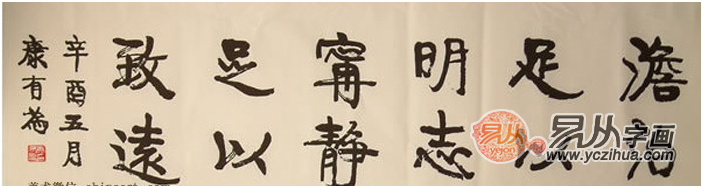 澹泊
足以
明志
寧静
足以
致遠
辛酉五月
康有為
易从字画
www.yczihua.com